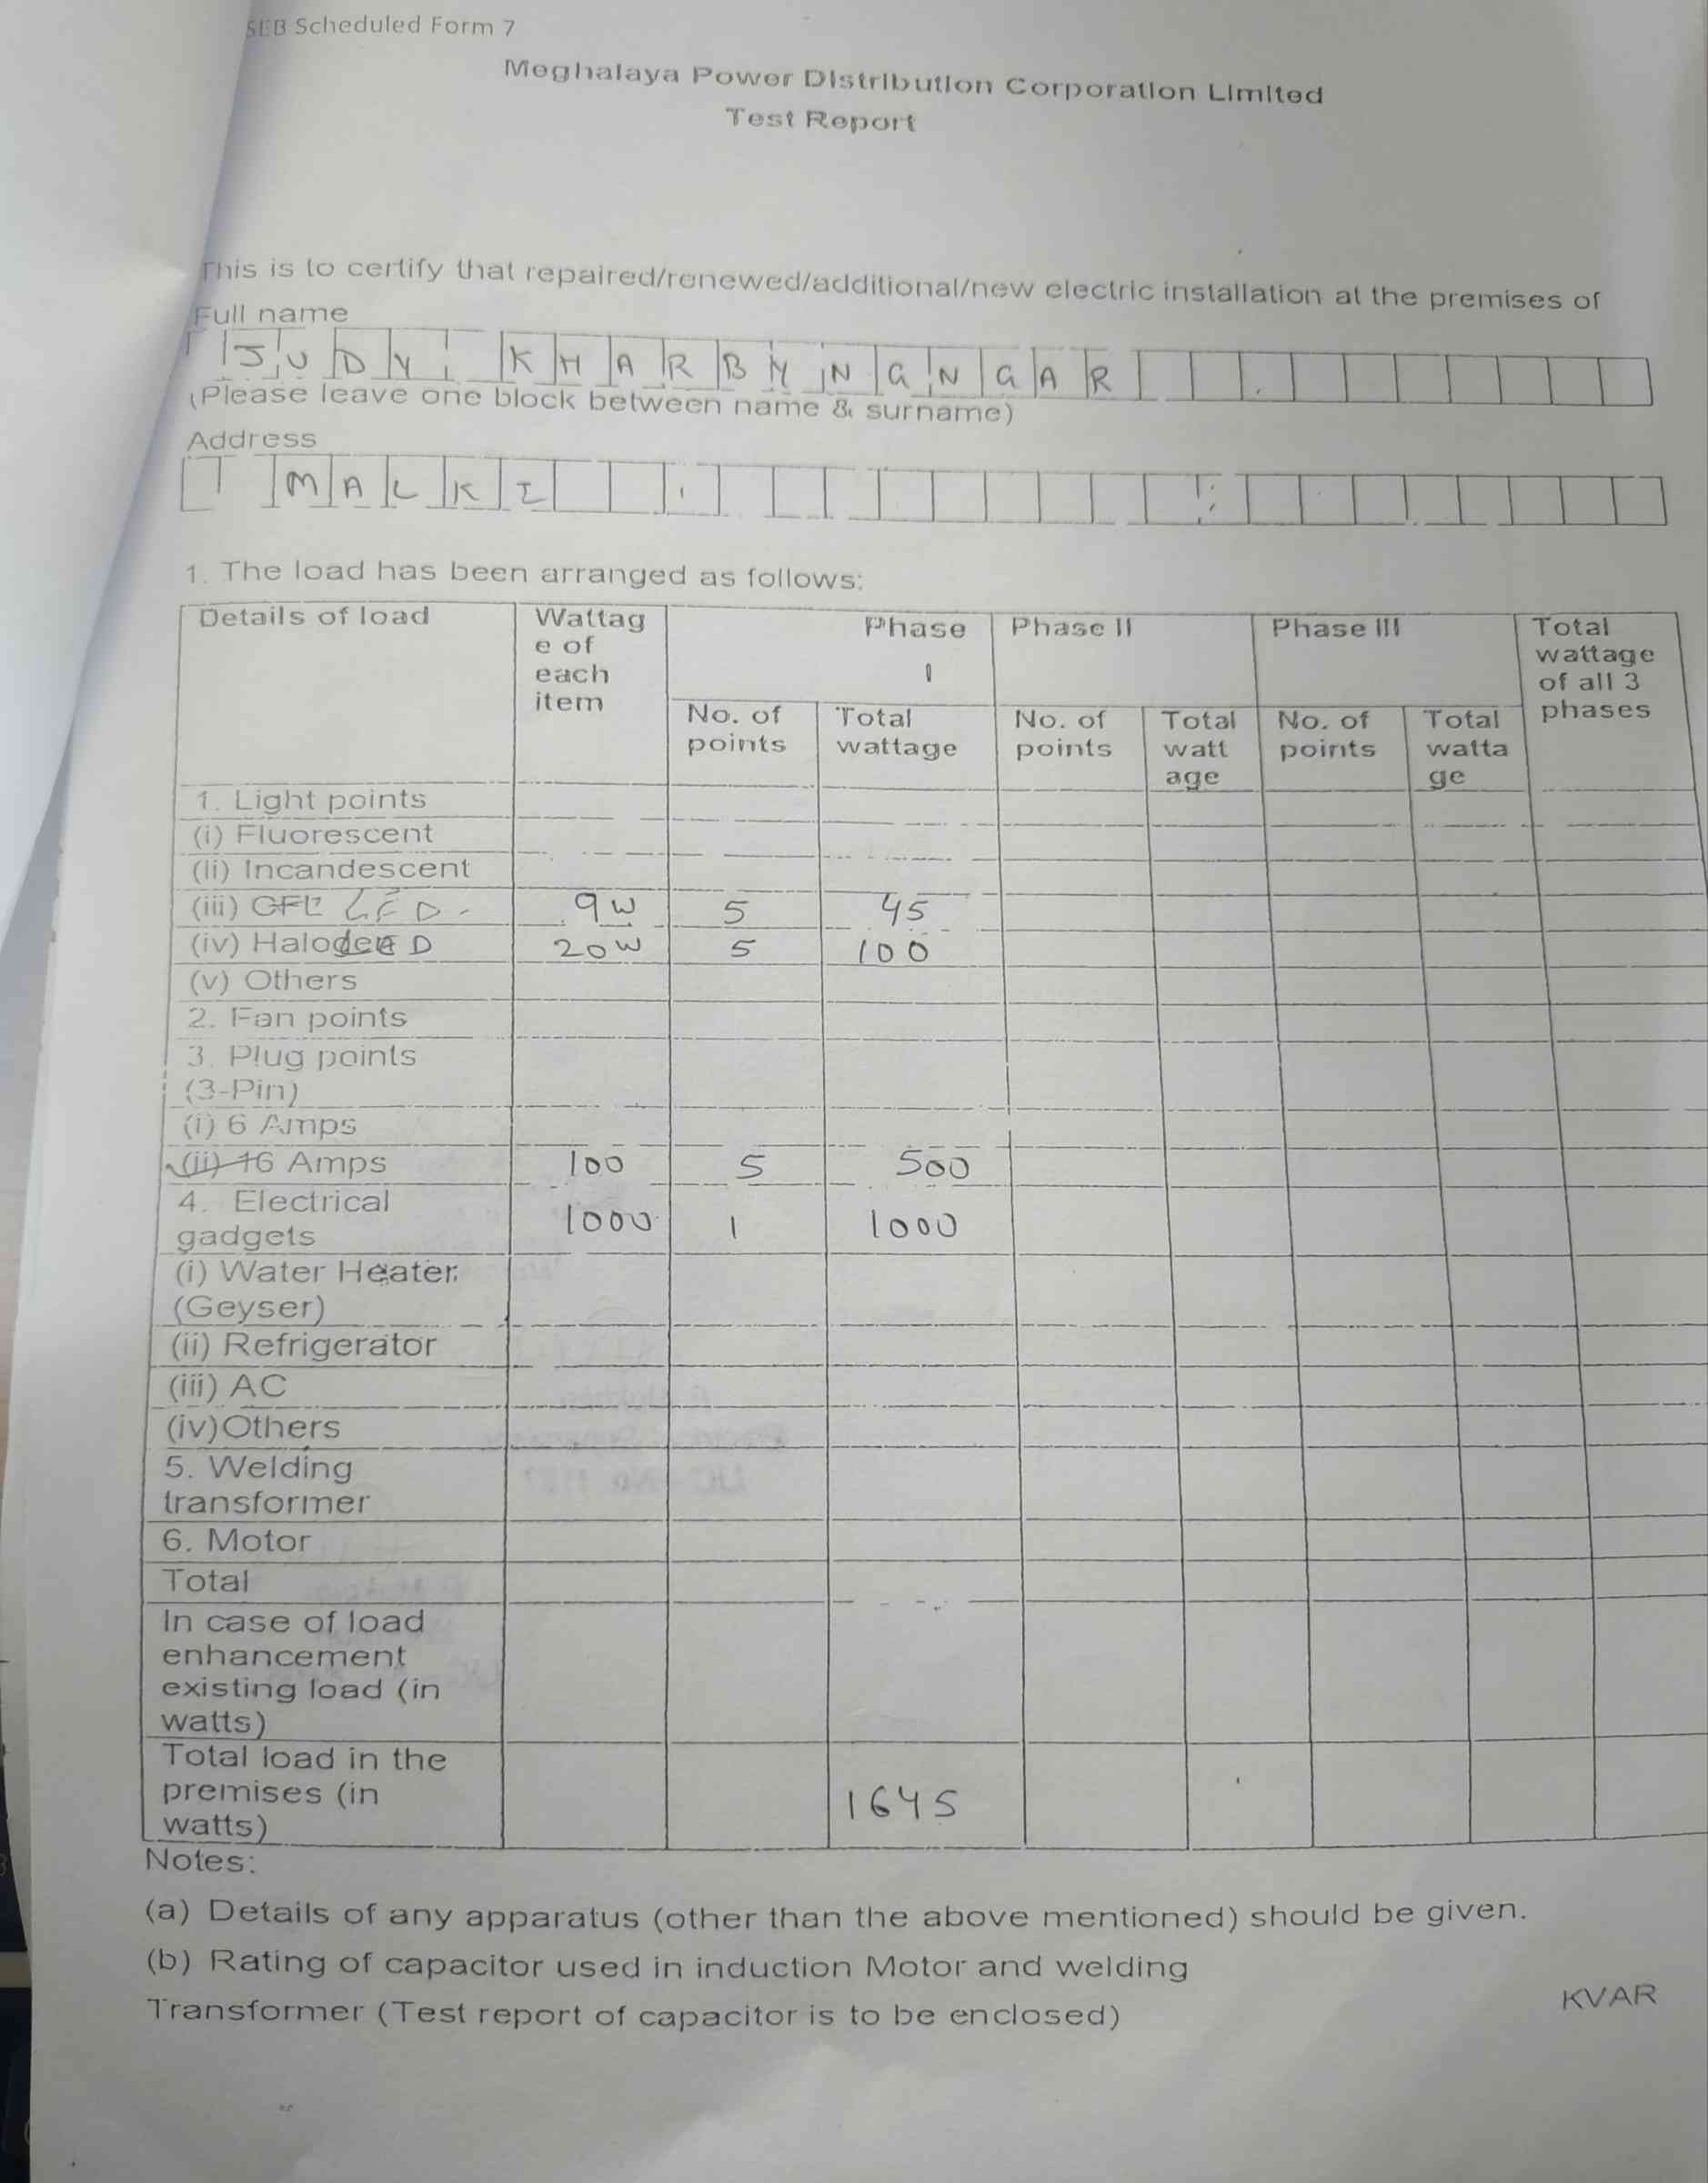 SEB Scheduled Form 7
Meghalaya Power Distribution Corporation Limited
Test Report
This is to certify that repaired/renewed/additional/new electric installation at the premises of
Full name
JUDY KHARBYNGNGAR
(Please leave one block between name & surname)
Address
MALKI
1. The load has been arranged as follows:
Details of load Wattage of each item Phase I Phase II Phase III Total wattage of all 3 phases
No. of points Total wattage No. of points Total wattage No. of points Total wattage
1. Light points
(i) Fluorescent
(ii) Incandescent
(iii) CFL LED 9W 5 45
(iv) 20W 5 100
(v) Others
2. Fan points
3. Plug points
(3-Pin)
(i) 6 Amps
(ii) 16 Amps 100 5 500
4. Electrical gadgets 1000 1 1000
(i) Water Heater
(Geyser)
(ii) Refrigerator
(iii) AC
(iv)Others
5. Welding
transformer
6. Motor
Total
In case of load
enhancement
existing load (in
watts)
Total load in the
premises (in
watts) 1645
Notes:
(a) Details of any apparatus (other than the above mentioned) should be given.
(b) Rating of capacitor used in induction Motor and welding
Transformer (Test report of capacitor is to be enclosed) KVAR